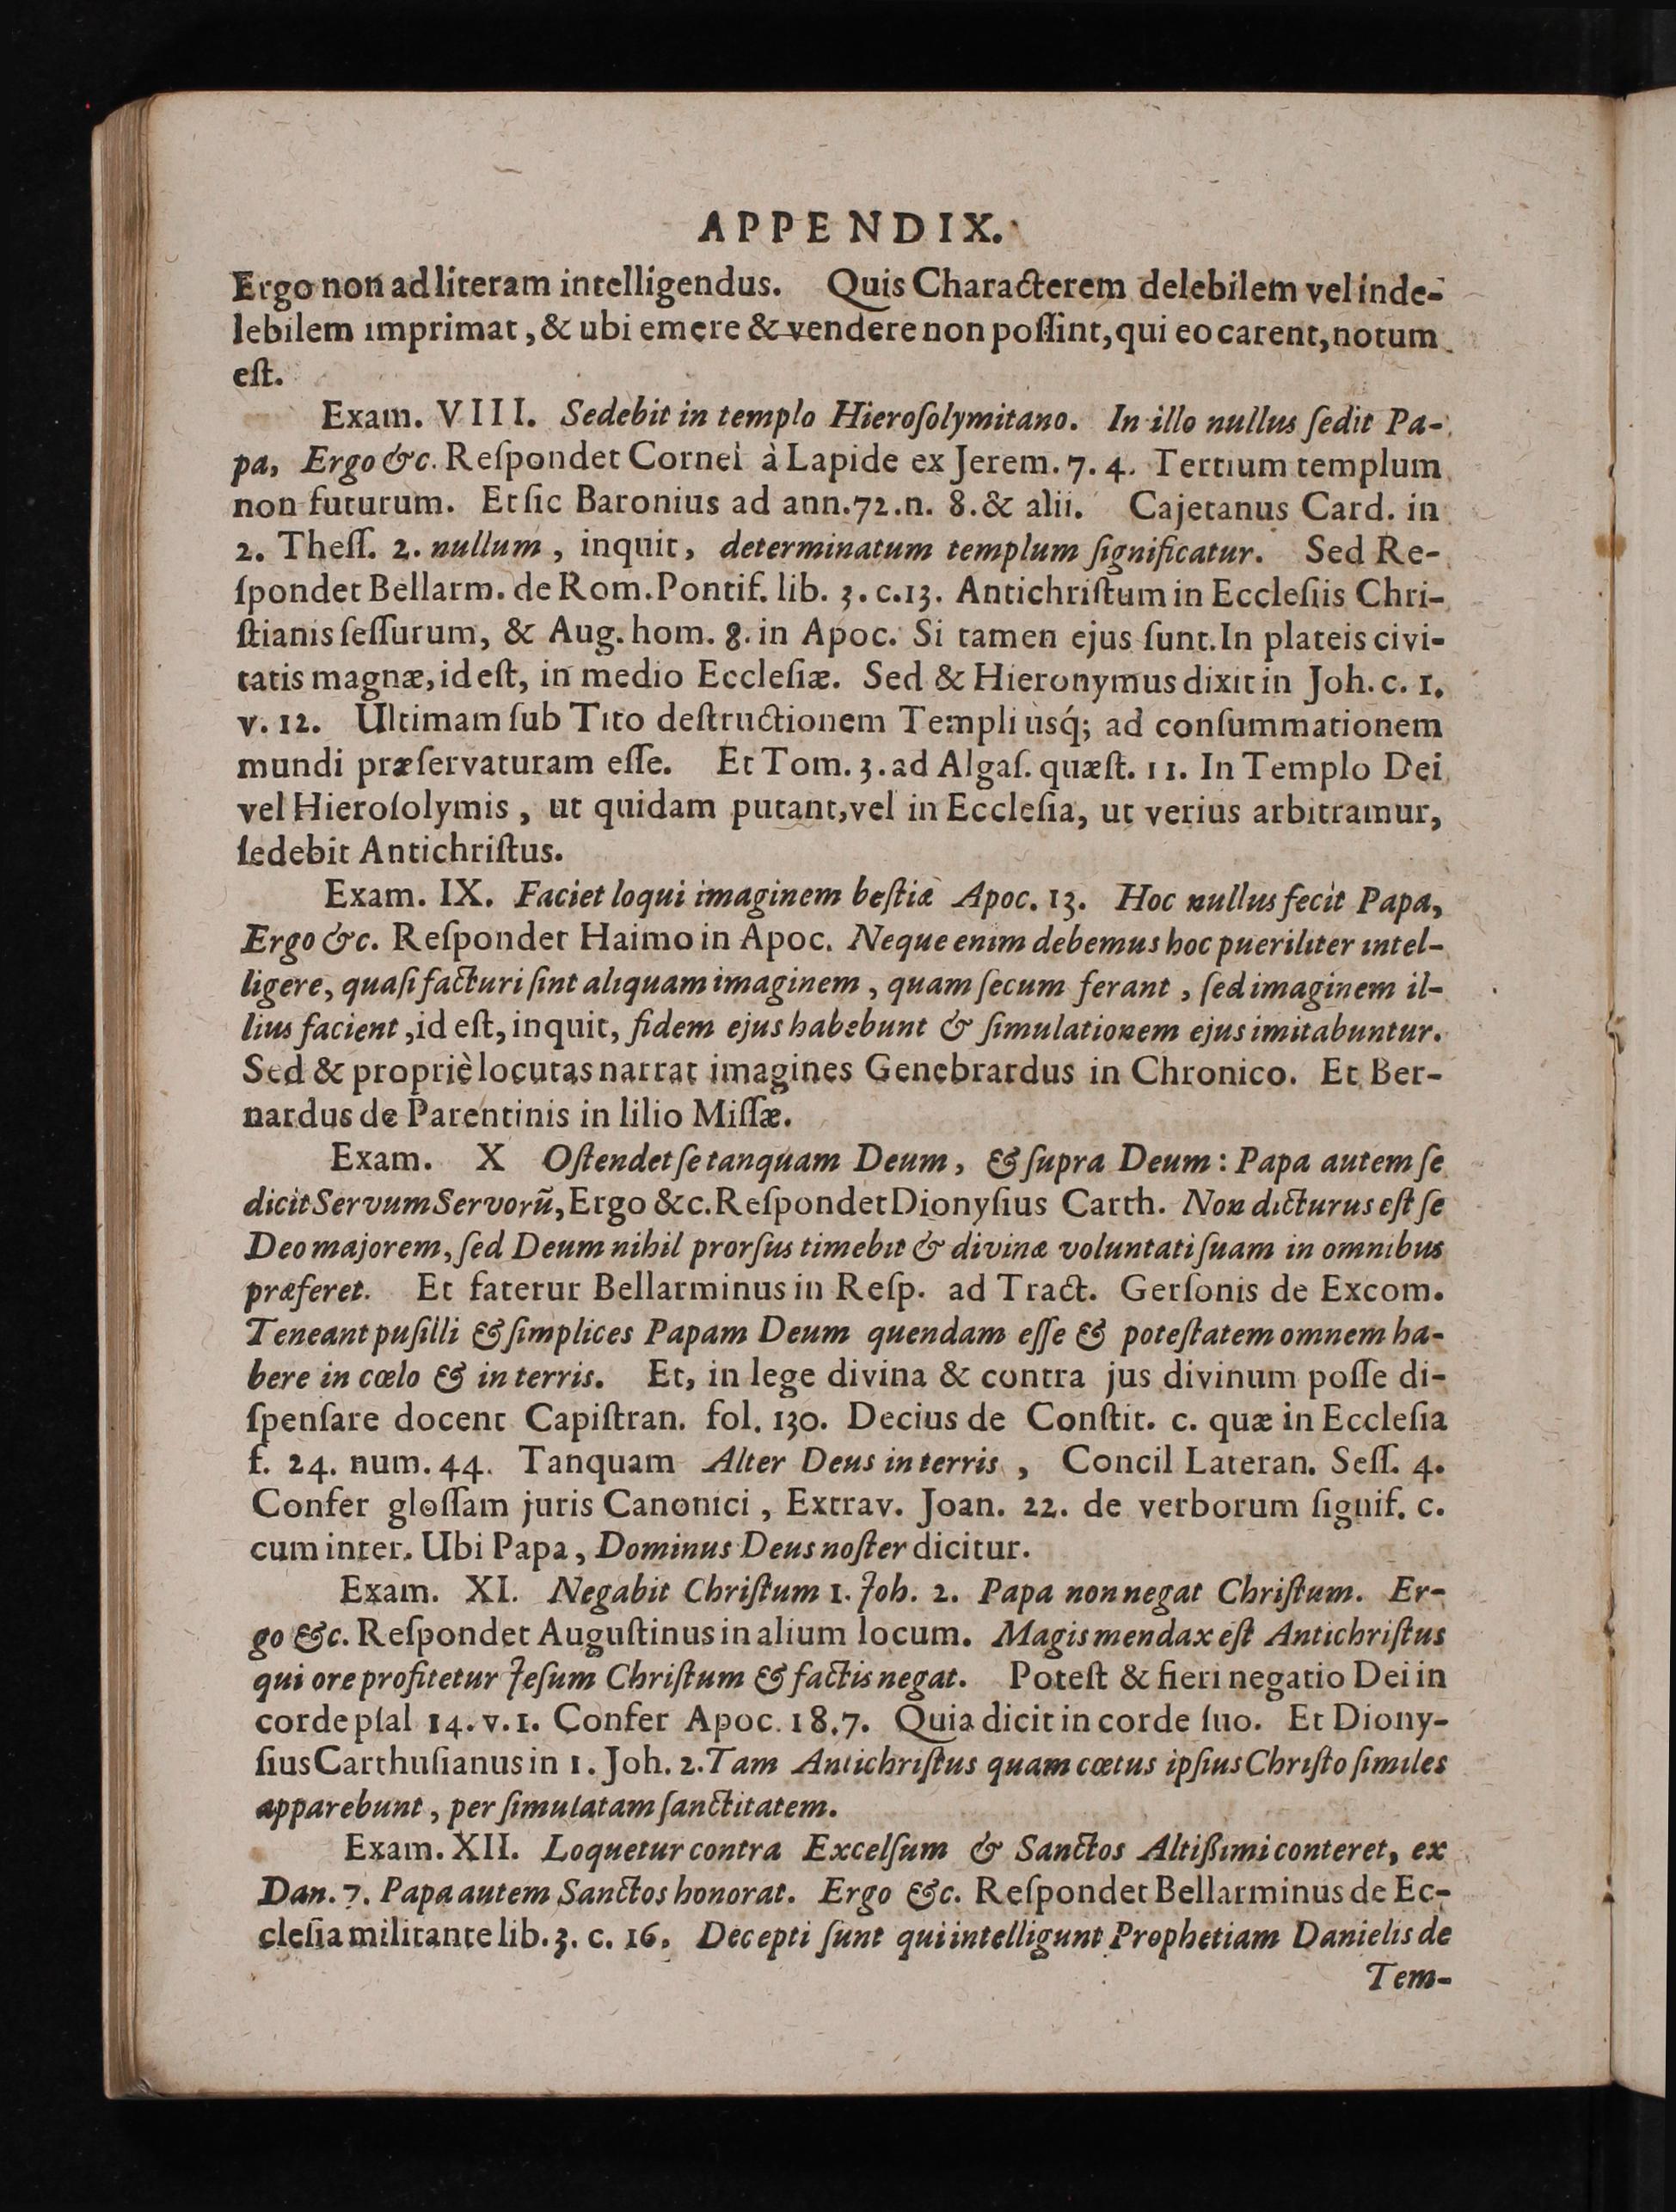 APPENDIX.
Ergo non ad literam intelligendus. Quis Characterem delebilem vel inde-
lebilem imprimat, & ubi emere & vendere non poſſint, qui eo carent, notum
eſt.
Exam. VIII. Sedebit in templo Hieroſolymitano. In illo nullus ſedit Pa-
pa, Ergo &c. Reſpondet Cornel à Lapide ex Jerem. 7. 4. Tertium templum
non futurum. Et ſic Baronius ad ann. 72. n. 8. & alii. Cajetanus Card. in
2. Theſſ. 2. nullum, inquit, determinatum templum ſignificatur. Sed Re-
ſpondet Bellarm. de Rom. Pontif. lib. 3. c. 13. Antichriſtum in Eccleſiis Chri-
ſtianis ſeſſurum, & Aug. hom. 8. in Apoc. Si tamen ejus ſunt. In plateis civi-
tatis magnæ, id eſt, in medio Eccleſiæ. Sed & Hieronymus dixit in Joh. c. 1.
v. 12. Ultimam ſub Tito deſtructionem Templi usq́; ad conſummationem
mundi præſervaturam eſſe. Et Tom. 3. ad Algaſ. quæſt. 11. In Templo Dei
vel Hieroſolymis, ut quidam putant, vel in Eccleſia, ut verius arbitramur,
ſedebit Antichriſtus.
Exam. IX. Faciet loqui imaginem beſtiæ Apoc. 13. Hoc nullus fecit Papa,
Ergo &c. Reſpondet Haimo in Apoc. Neque enim debemus hoc pueriliter intel-
ligere, quaſi facturi ſint aliquam imaginem, quam ſecum ferant, ſed imaginem il-
lius facient, id eſt, inquit, fidem ejus habebunt & ſimulationem ejus imitabuntur.
Sed & propriè locutas narrat imagines Genebrardus in Chronico. Et Ber-
nardus de Parentinis in lilio Miſſæ.
Exam. X Oſtendet ſe tanquam Deum, & ſupra Deum: Papa autem ſe
dicit Servum Servorũ, Ergo &c. Reſpondet Dionyſius Carth. Non dicturus eſt ſe
Deo majorem, ſed Deum nihil prorſus timebit & divinæ voluntati ſuam in omnibus
præferet. Et fatetur Bellarminus in Reſp. ad Tract. Gerſonis de Excom.
Teneant puſilli & ſimplices Papam Deum quendam eſſe & poteſtatem omnem ha-
bere in cœlo & in terris. Et, in lege divina & contra jus divinum poſſe di-
ſpenſare docent Capiſtran. fol. 130. Decius de Conſtit. c. quæ in Eccleſia
f. 24. num. 44. Tanquam Alter Deus in terris, Concil Lateran. Seſſ. 4.
Confer gloſſam juris Canonici, Extrav. Joan. 22. de verborum ſignif. c.
cum inter. Ubi Papa, Dominus Deus noſter dicitur.
Exam. XI. Negabit Chriſtum 1. Joh. 2. Papa non negat Chriſtum. Er-
go &c. Reſpondet Auguſtinus in alium locum. Magis mendax eſt Antichriſtus
qui ore profitetur Jeſum Chriſtum & factis negat. Poteſt & fieri negatio Dei in
corde pſal 14. v. 1. Confer Apoc. 18. 7. Quia dicit in corde ſuo. Et Diony-
ſius Carthuſianus in 1. Joh. 2. Tam Antichriſtus quam cœtus ipſius Chriſto ſimiles
apparebunt, per ſimulatam ſanctitatem.
Exam. XII. Loquetur contra Excelſum & Sanctos Altiſſimi conteret, ex
Dan. 7. Papa autem Sanctos honorat. Ergo &c. Reſpondet Bellarminus de Ec-
cleſia militante lib. 3. c. 16. Decepti ſunt qui intelligunt Prophetiam Danielis de
Tem-